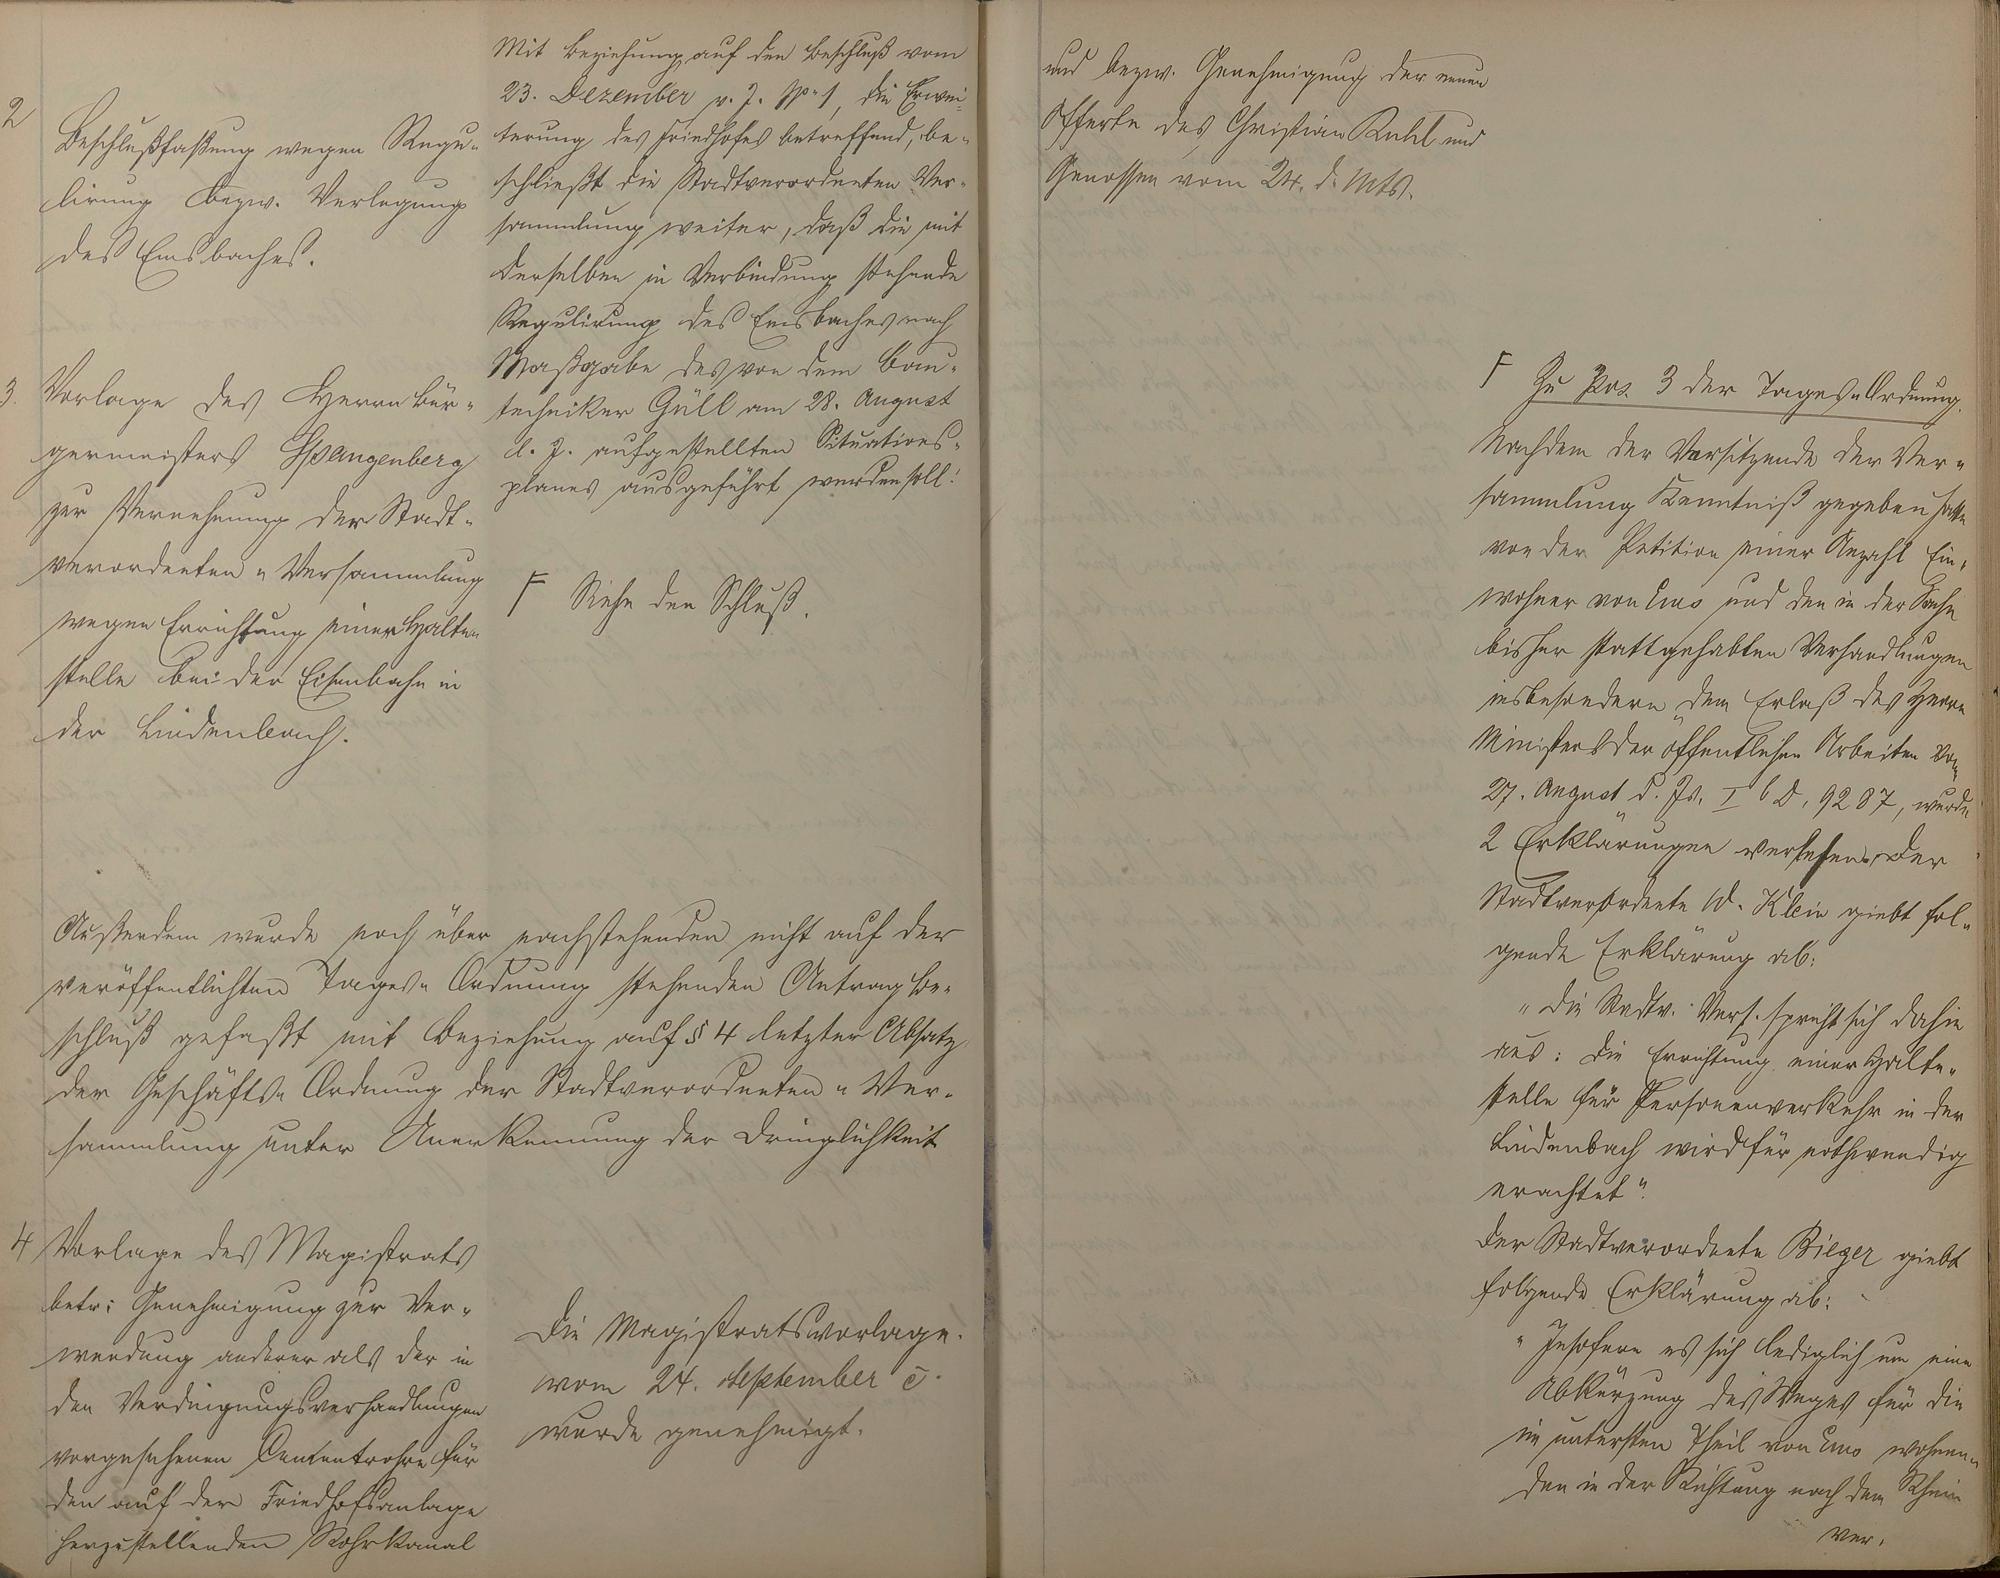 2
Beschlußfassung wegen Regu-
lirung bezw. Verlegung
des Emsbaches.
Mit Beziehung auf den Beschluß vom
23. Dezember v. J. No 1, die Erwei-
terung des Friedhofes betreffend, be-
schließt die Stadtverordneten Ver-
sammlung weiter, daß die mit
derselben in Verbindung stehende
Regulirung des Emsbaches nach
Maßgabe des von dem Bau-
techniker Güll am 28. August
d. J. aufgestellten Situations-
planes ausgeführt werden soll.
3. Vorlage des Herrn Bür-
germeisters Spangenberg
zur Vernehmung der Stadt-
verordneten-Versammlung
wegen Errichtung einer Halte-
stelle bei der Eisenbahn in
der Lindenbach.
F Siehe den Schluß.
Außerdem wurde noch über nachstehenden nicht auf der
veröffentlichten Tages-Ordnung stehenden Antrag Be-
schluß gefaßt mit Beziehung auf § 4 letzter Absatz
der Geschäfts-Ordnung der Stadtverordneten-Ver-
sammlung unter Anerkennung der Dringlichkeit
4 Vorlage des Magistrats
betr: Genehmigung zur Ver-
wendung anderer als der in
den Verdingungsverhandlungen
vorgesehenen Cementrohre für
den auf der Friedhofsanlage
herzustellenden Rohrkanal
Die Magistratsvorlage
vom 24. September c.
wurde genehmigt.
und bezw. Genehmigung der neuen
Offerte des Christian Ruhl und
Genossen vom 24. d. Mts.
F Zu Pos. 3 der Tages-Ordnung.
Nachdem der Vorsitzende der Ver-
sammlung Kenntniß gegeben hatte
von der Petition einer Anzahl Ein-
wohner von Ems und den in der Sache
bisher stattgehabten Verhandlungen
insbesondere dem Erlaß des Herrn
Ministers der öffentlichen Arbeiten vom
27. August d. Js. I b D. 9287, wurde
2 Erklärungen verlesen, der
Stadtverordnete W. Klein giebt fol-
gende Erklärung ab:
"Die Stadtv. Vers. spricht sich dahin
aus: Die Errichtung einer Halte-
stelle für Personenverkehr in der
Lindenbach wird für nothwendig
erachtet".
Der Stadtverordnete Bieger giebt
folgende Erklärung ab:
"Insofern es sich lediglich um eine
Abkürzung des Weges für die
im untersten Theil von Ems wohnen-
den in der Richtung nach dem Rhein
ver.